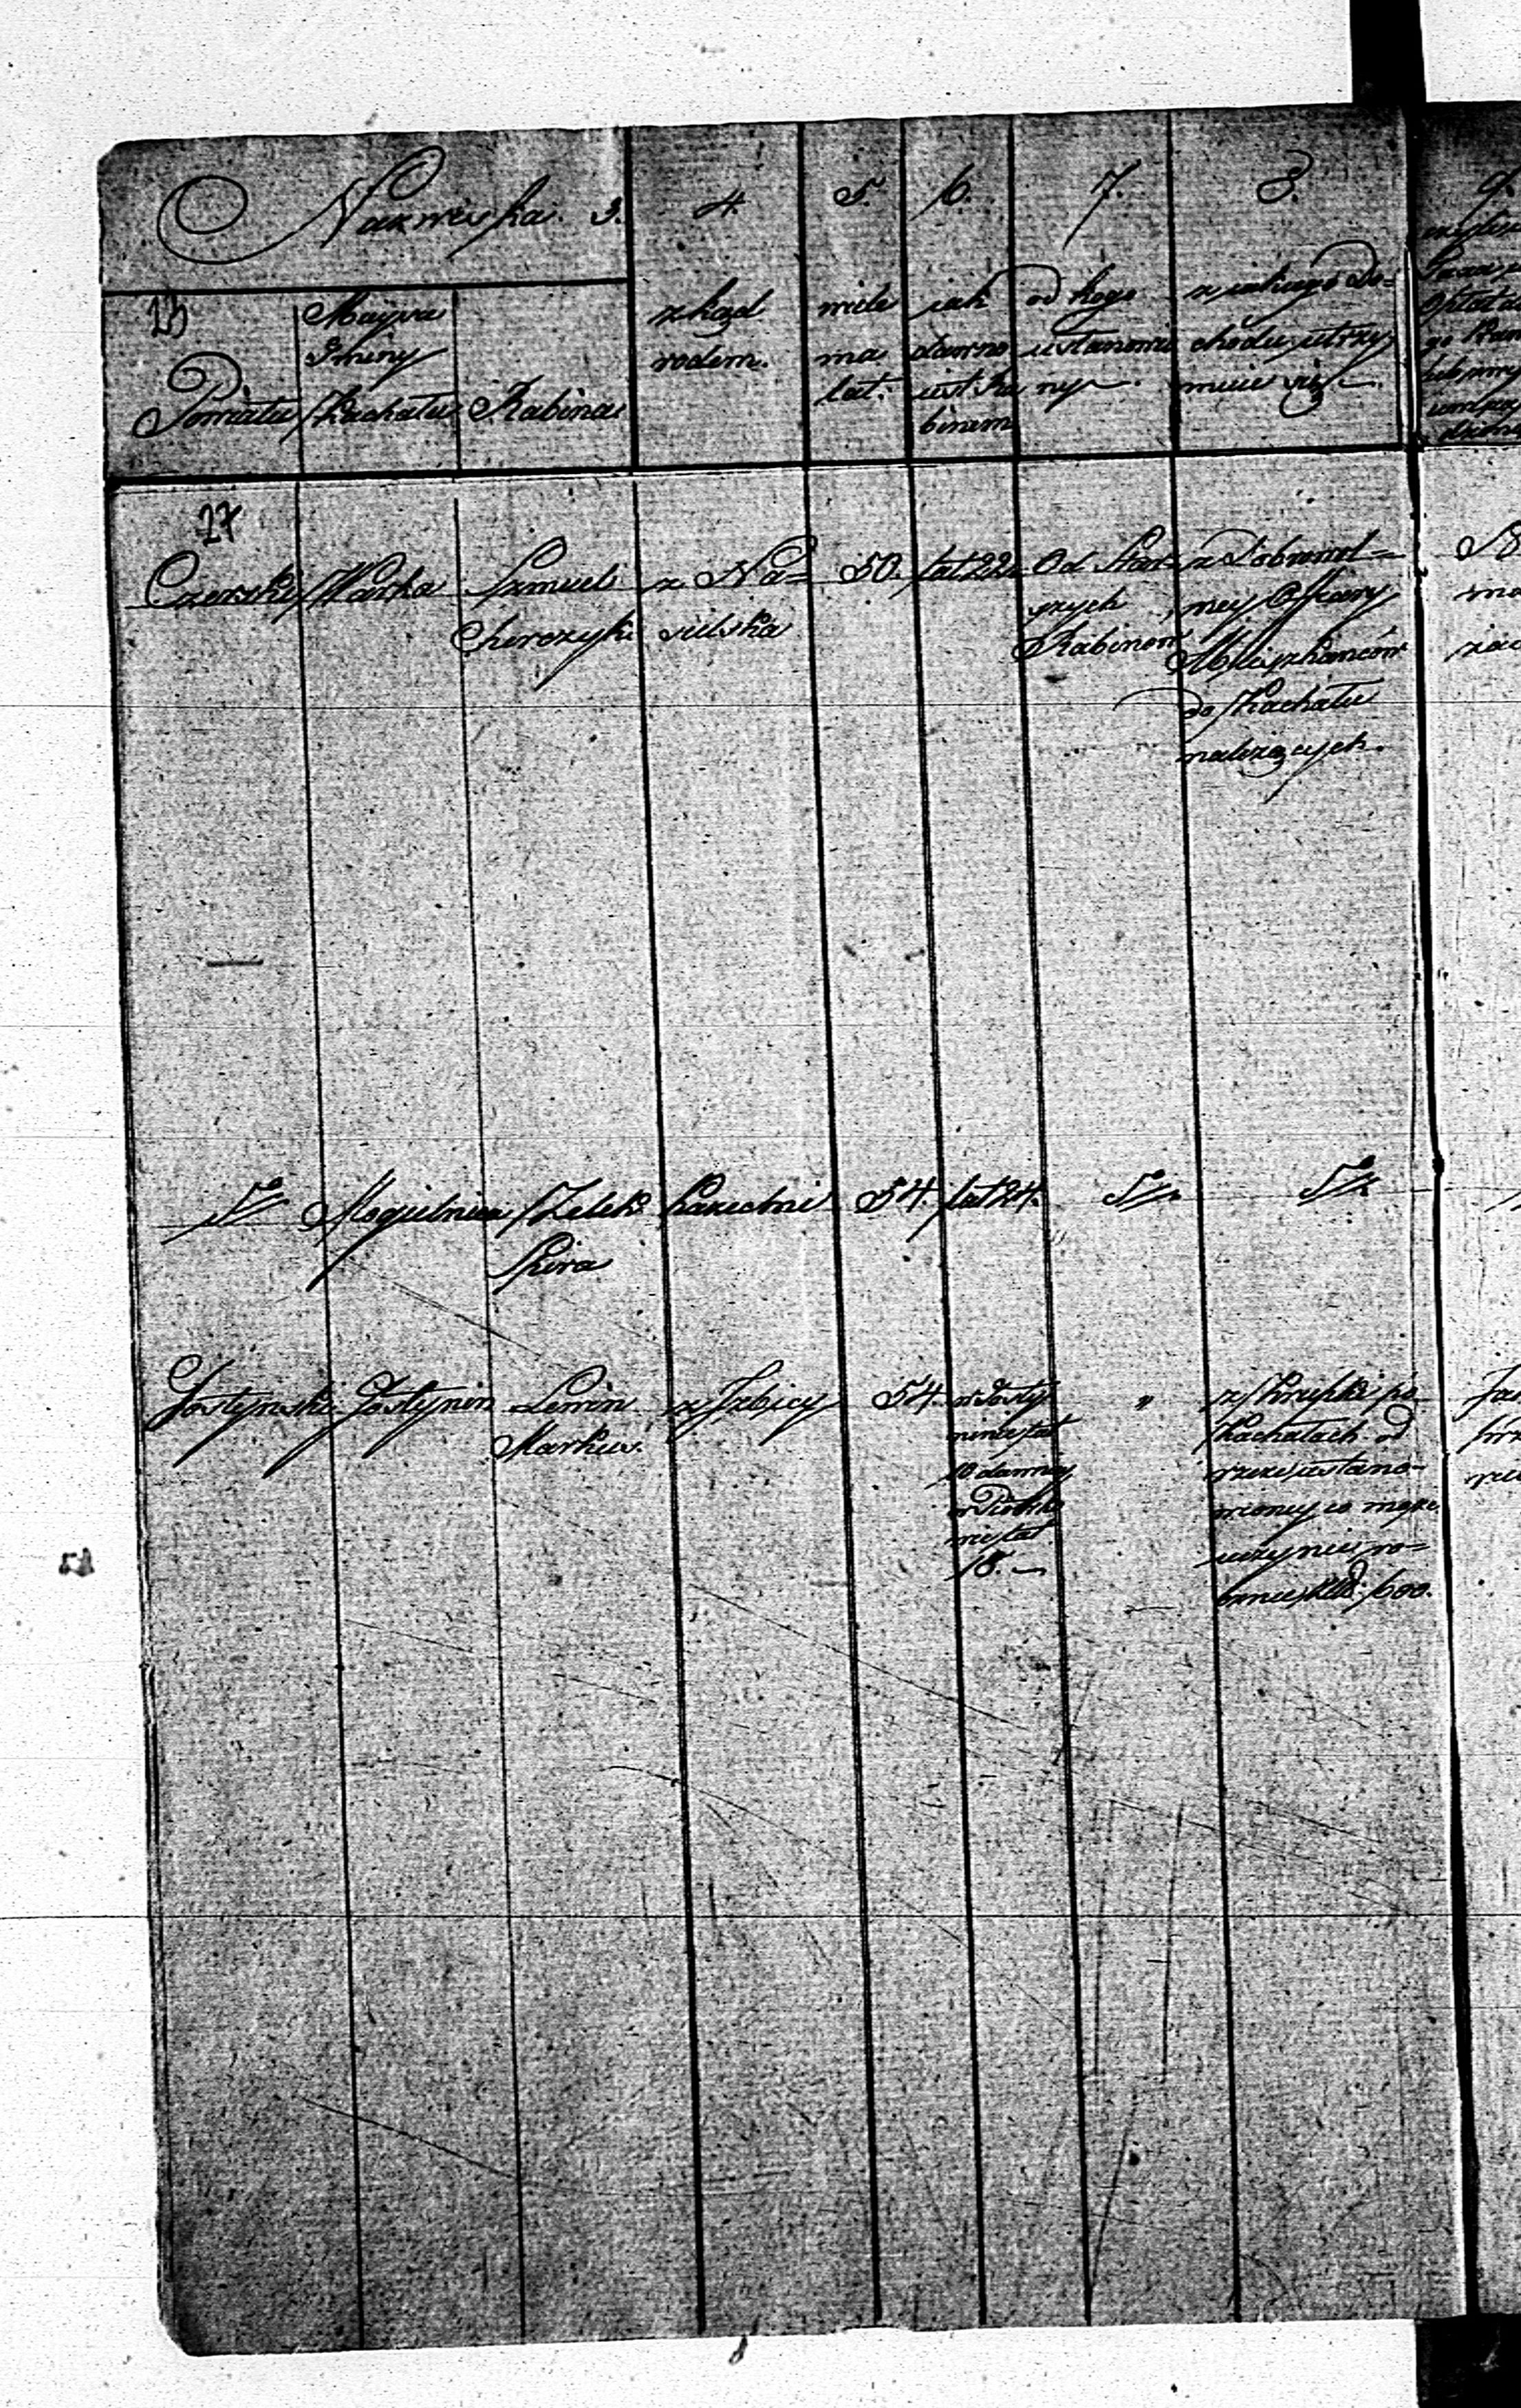 Nazwiska 3.
4.
5.
6.
7.
8.
9.
23
Powiatu
Mieysca
Gminy
Kachału
Rabina
zkąd
rodem.
wiele
ma
lat.
iak
dawno
iest Ra
binem
od kogo
ustanowio
ny
z iakiego Do=
chodu utrzy
muie się
27
Czerski
Warka
Szmul
z Na=
sielska
50.
lat 22.
Od Star
szych
Rabinów
z Dobrowol=
ney Ofiary
Mieszkańców
do Kachału
należących.
Mogielnica
Zelek
Spira
54.
lat 24.
Gostynski
Gostynin
Lewin
Markus.
z Izbicy
54.
w Gosty
ninie lat
10 dawniey
lat
18.
"
z Składki po
Kachałach od
ustano=
wioney co może
uczynić ro=
cznie 600.